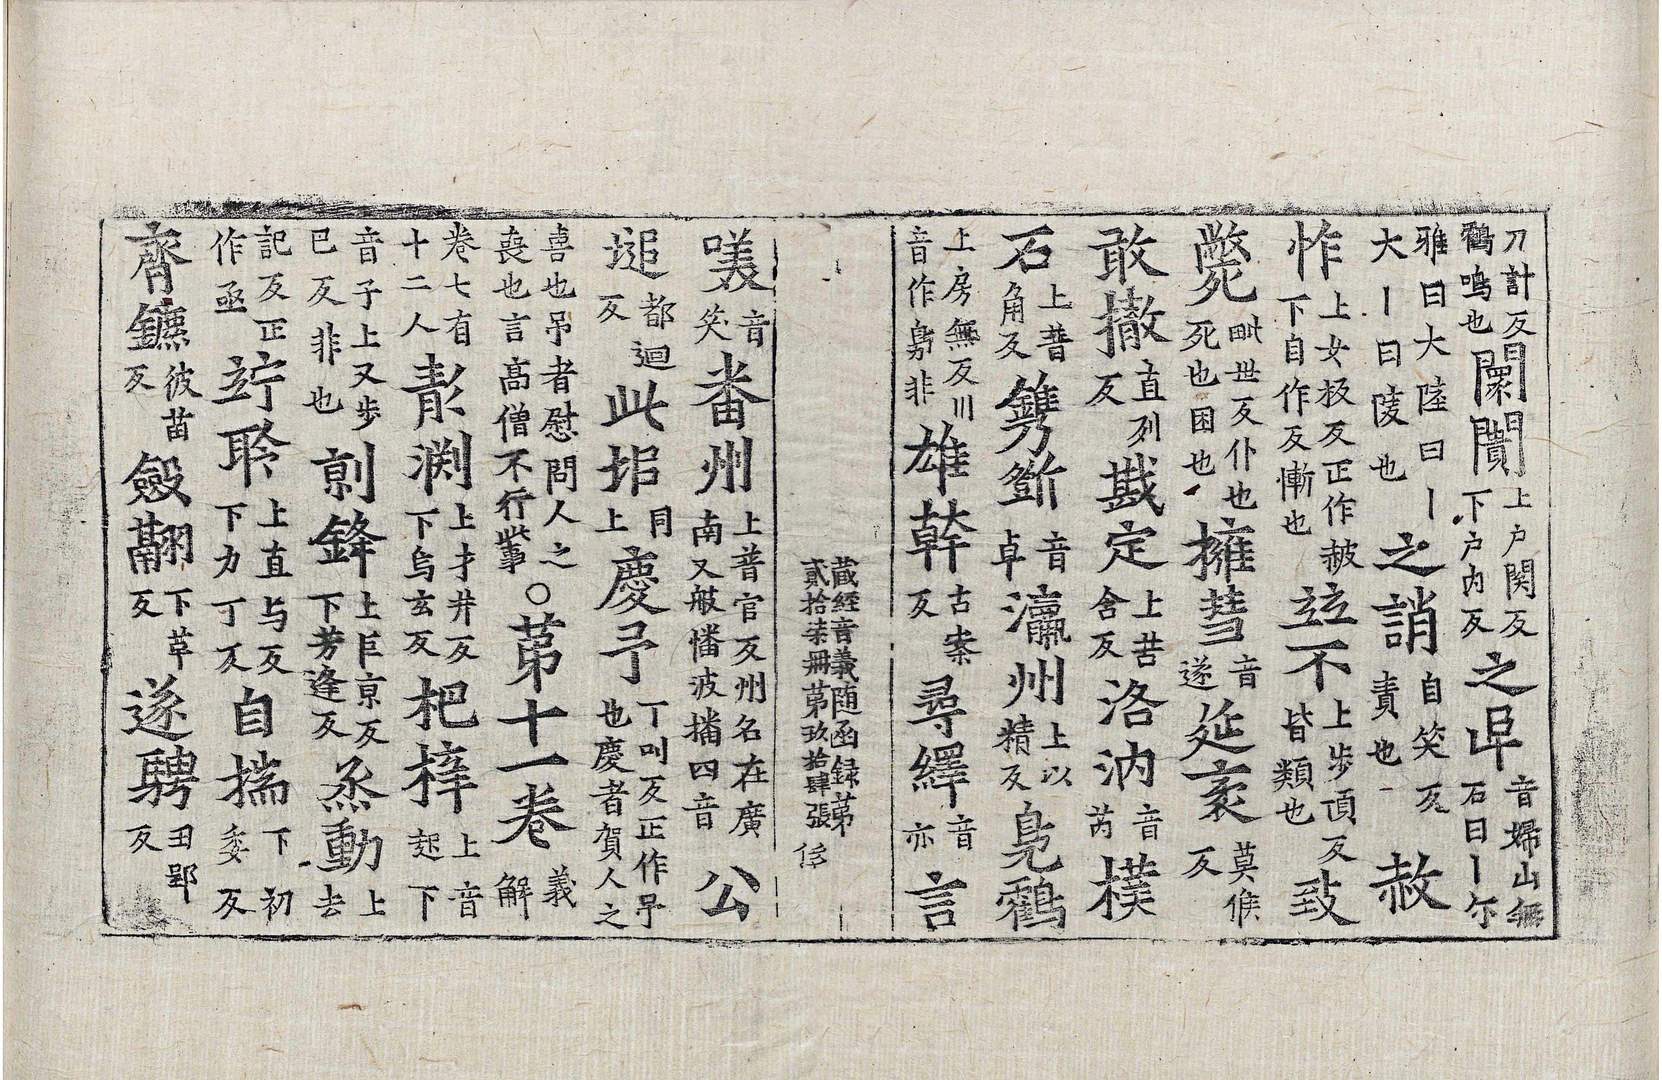 刀計反鶴鳴也闤闠上户関反下户内反之𨸏音婦山無石曰丨尔
雅曰大陸曰丨大丨曰陵也之誚自笑反責也赦
怍上女板反正作赧下自作反慚也竝不上步頂反皆類也致
斃毗世反仆也死也困也擁彗音遂延袤莫候反
敢撤直列反戡定上苦含反洛汭音芮樸
石上普角反鐫斲音卓瀛州上以精反鳧鶴
上房無反川音作舅非雄幹古案反尋繹音亦言
蔵經音義随函録第貳拾柒冊第玖拾肆張
嘆音笑番州上普官反州名在廣南又般憣波播四音公
塠都迴反此垖同上慶予丁叫反正作弔也慶者賀人之
喜也吊者慰問人之喪也言髙僧不行此事○第十一卷義解
卷七有十二人彰渊上才井反下烏玄反杞梓上音起下
音子上又步巳反非也剠鋒上巨京反下芳逢反烝動上去
記反正作亟竚聆上直与反下力丁反自揣下初委反
齊鑣彼苗反斂翮下革反遂騁丑郢反